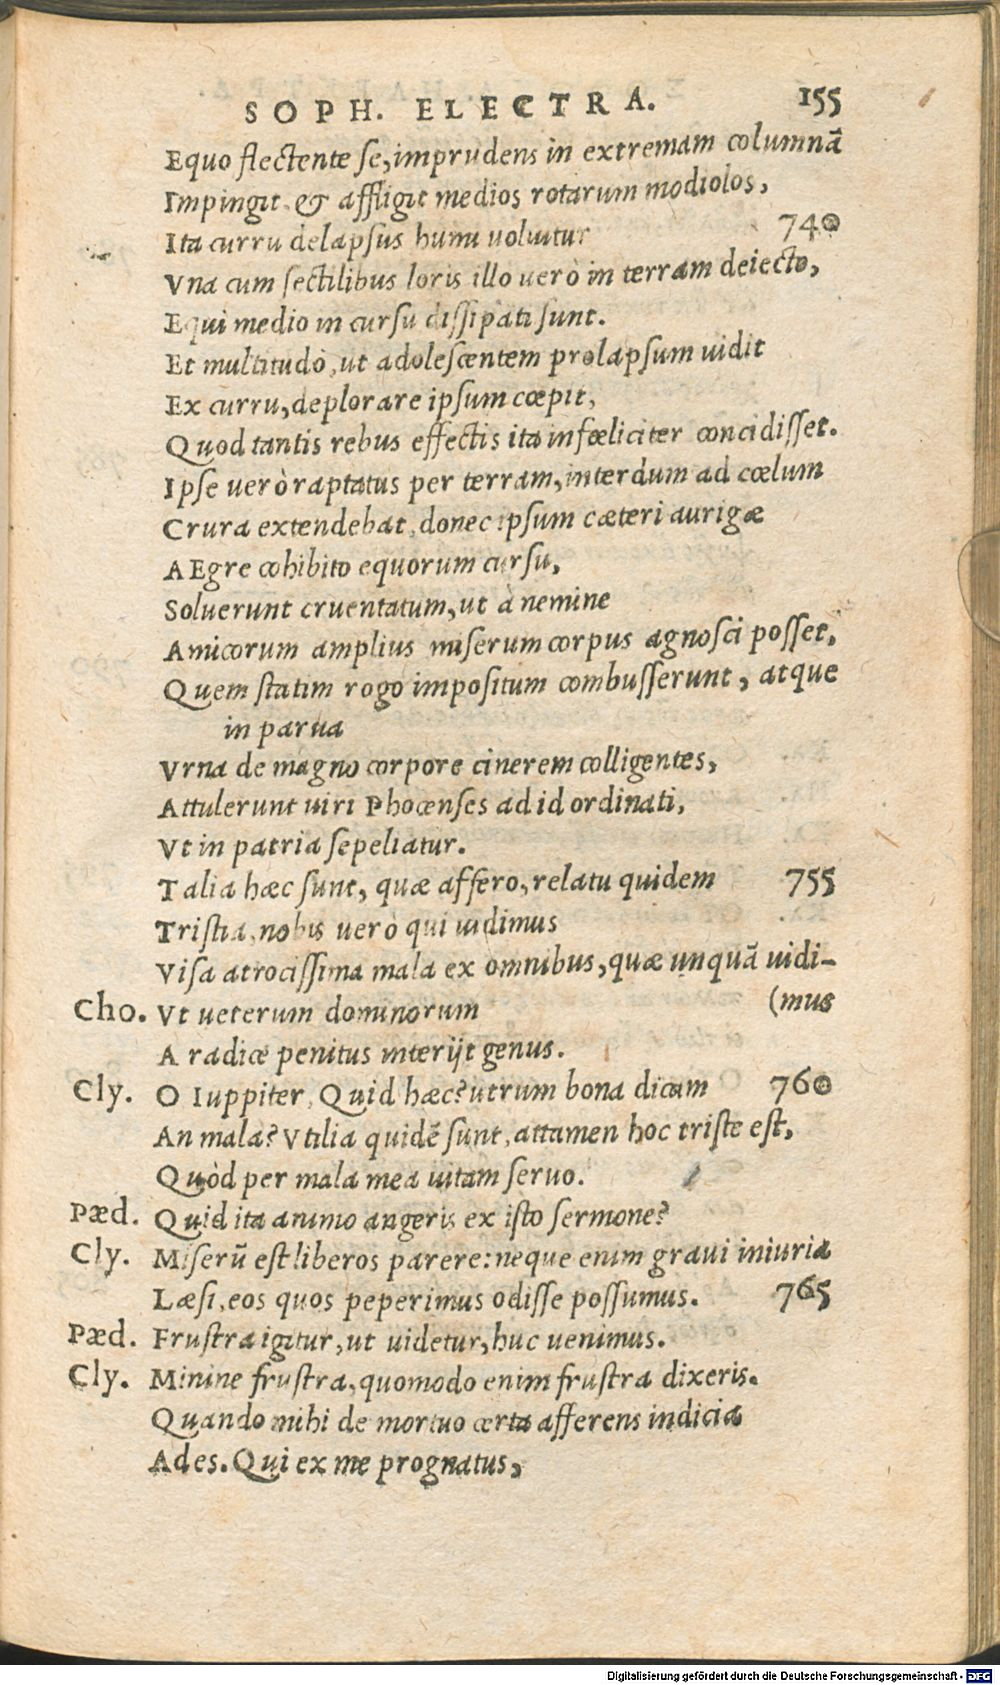 SOPH. ELECTRA. 155
Equo flectente se, imprudens in extremam columnã
Impingit & affligit medios rotarum modiolos,
Ita curru delapsus humi voluitur 740
Vna cum sectilibus loris illo uerò in terram deiecto,
Equi medio in cursu dissipati sunt.
Et multitudo, ut adolescentem prolapsum uidit
Ex curru, deplorare ipsum cœpit,
Quod tantis rebus effectis ita infœliciter concidisset.
Ipse uerò raptatus per terram, interdum ad cœlum
Crura extendebat, donec ipsum cæteri aurigæ
AEgre cohibito equorum cursu,
Soluerunt cruentatum, ut à nemine
Amicorum amplius miserum corpus agnosci posset.
Quem statim rogo impositum combusserunt, atque
in parua
Vrna de magno corpore cinerem colligentes,
Attulerunt uiri Phocenses ad id ordinati,
Vt in patria sepeliatur.
Talia hæc sunt, quæ affero, relatu quidem 755
Tristia, nobis uerò qui uidimus
Visa atrocissima mala ex omnibus, quæ unquã uidi-
Cho. Vt ueterum dominorum (mus
A radice penitus interijt genus.
Cly. O Iuppiter, Quid hæc? utrum bona dicam 760
An mala? Vtilia quidẽ sunt, attamen hoc triste est,
Quòd per mala mea uitam seruo.
Pæd. Quid ita animo angeris ex isto sermone?
Cly. Miserũ est liberos parere: neque enim graui iniuria
Læsi, eos quos peperimus odisse possumus. 765
Pæd. Frustra igitur, ut uidetur, huc uenimus.
Cly. Minine frustra, quomodo enim frustra dixeris.
Quando mihi de mortuo certa afferens indicia
Ades. Qui ex me prognatus,
Digitalisierung gefördert durch die Deutsche Forschungsgemeinschaft - DFG